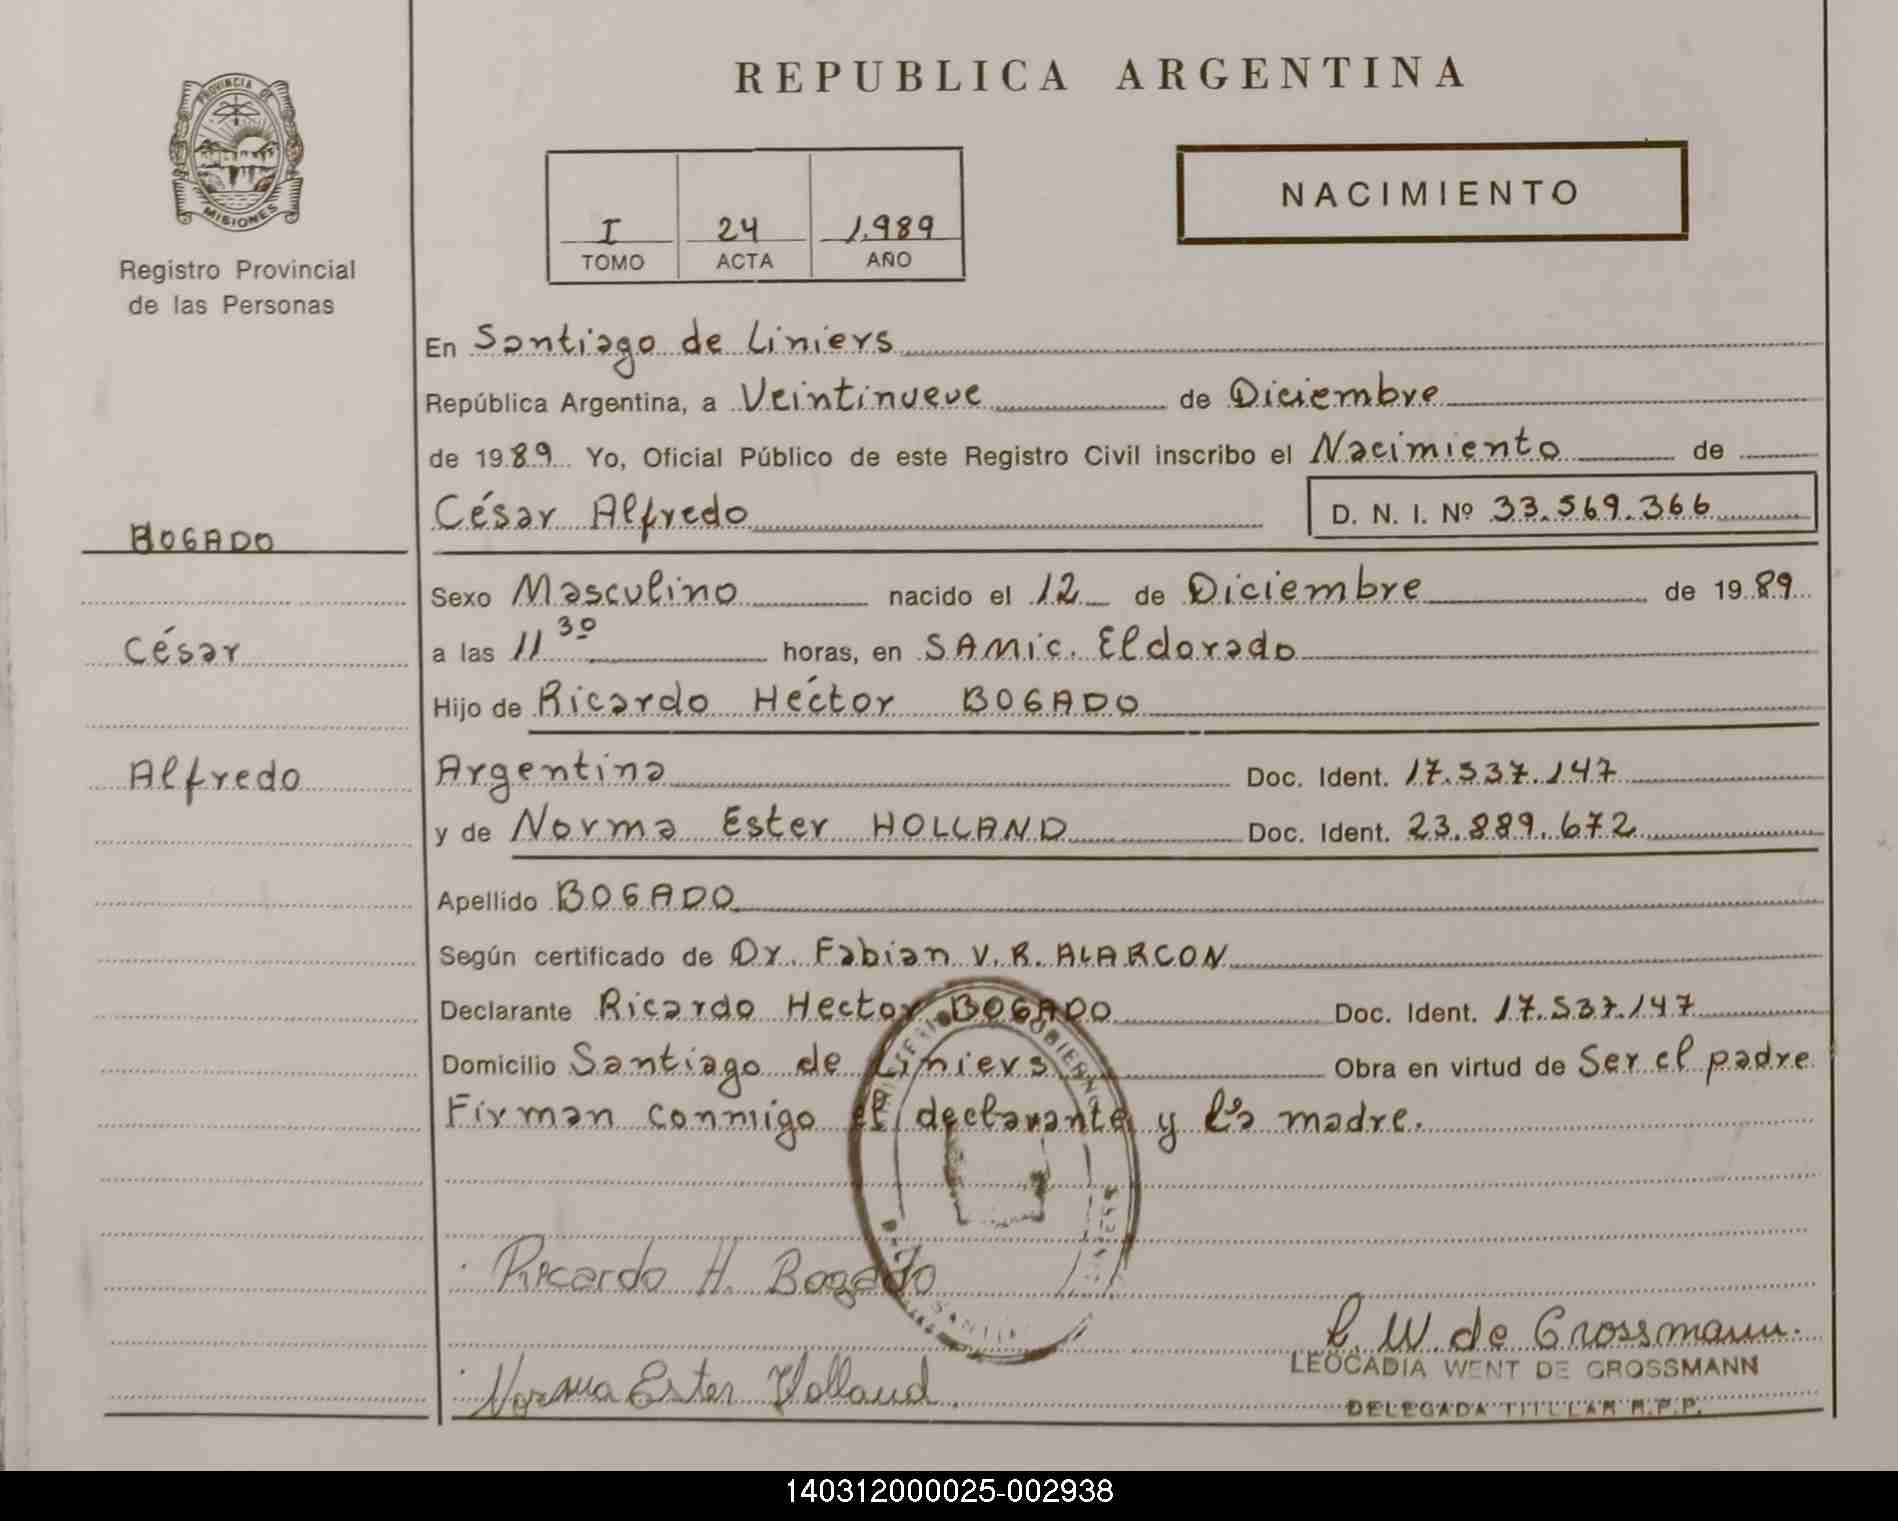 REPUBLICA ARGENTINA
PROVINCIA DE
MISIONES
Registro Provincial
de las Personas
I 24 1.989
TOMO ACTA AÑO
NACIMIENTO
En Santiago de Liniers
República Argentina, a Veintinueve de Diciembre
de 1989 Yo, Oficial Público de este Registro Civil inscribo el Nacimiento de
César Alfredo D. N. I. Nº 33.569.366
BOGADO
Sexo Masculino nacido el 12 de Diciembre de 1989
César
a las 11 30 horas, en SAMIC. Eldorado
Hijo de Ricardo Héctor BOGADO
Alfredo
Argentina Doc. Ident. 17.537.147
y de Norma Ester HOLLAND Doc. Ident. 23.889.672
Apellido BOGADO
Según certificado de Dr. Fabian V. R. ALARCON
Declarante Ricardo Hector BOGADO Doc. Ident. 17.537.147
Domicilio Santiago de Liniers Obra en virtud de Ser el padre
Firman conmigo el declarante y la madre.
Ricardo H. Bogado
L. W. de Grossmann.
LEOCADIA WENT DE GROSSMANN
Norma Ester Holland
DELEGADA TITULAR R.P.P.
140312000025-002938